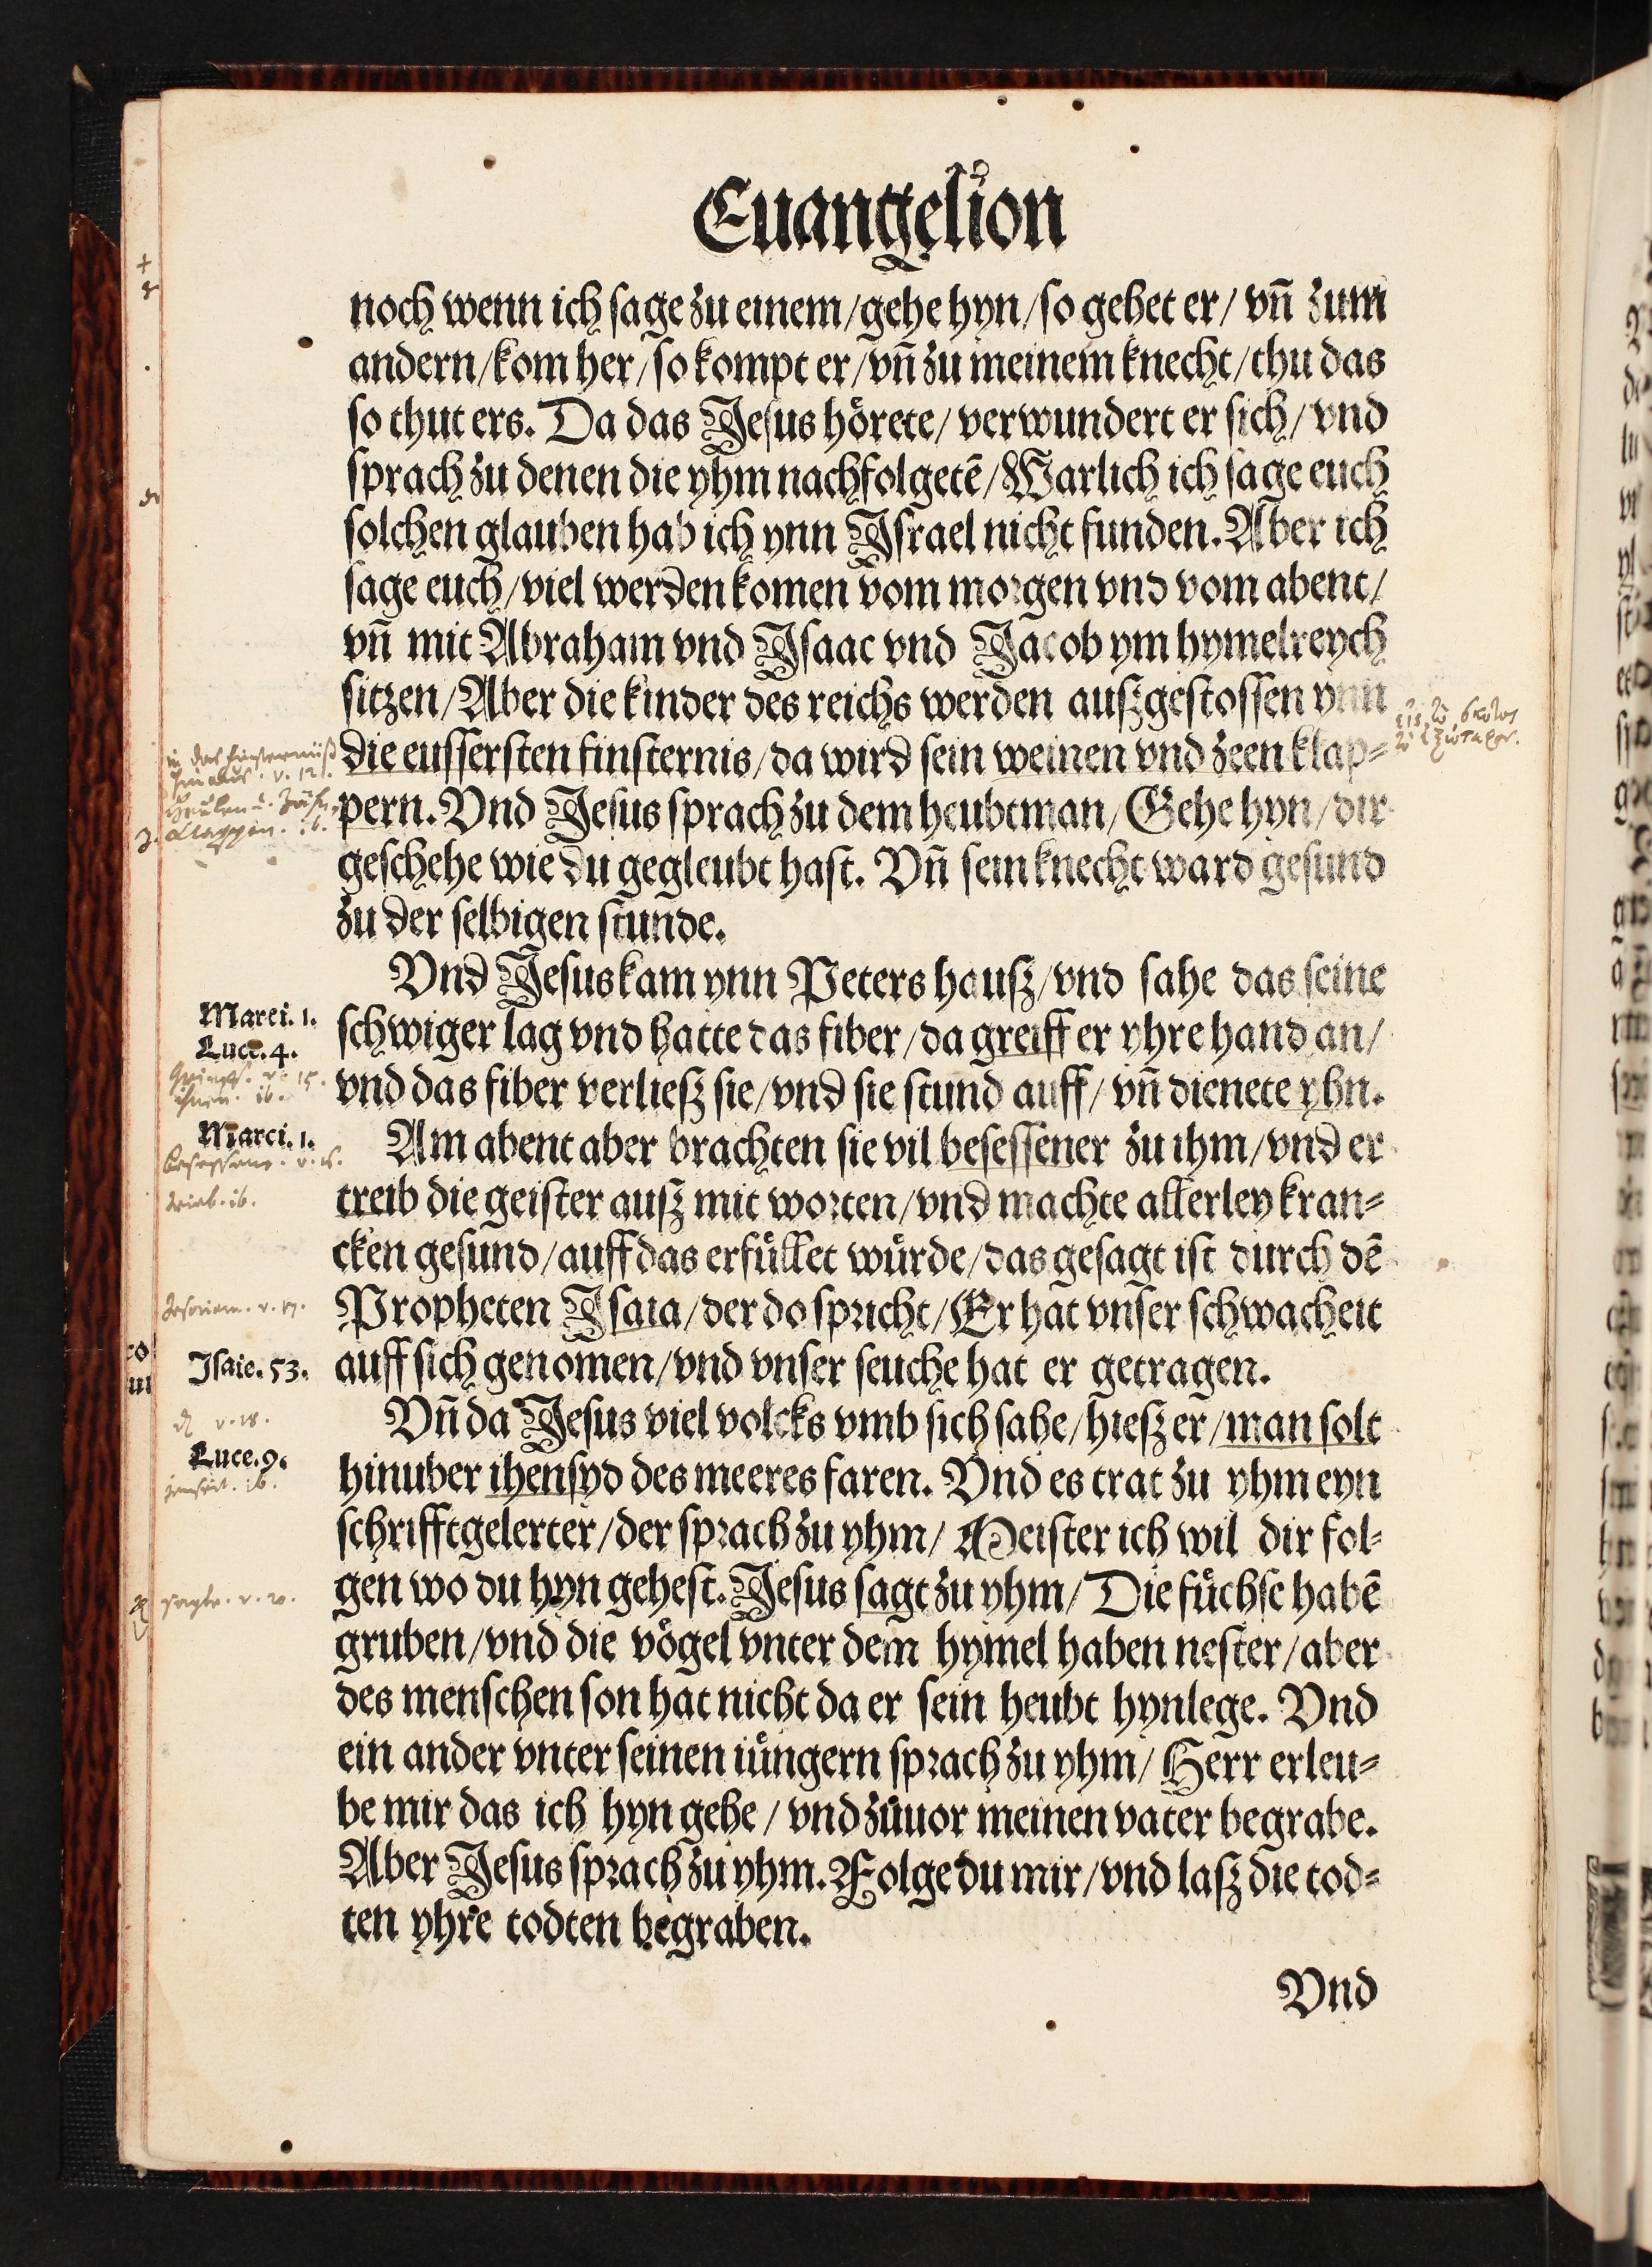 Euangelion
noch wenn ich sage zu einem/gehe hyn/so gehet er/ vn̄ zum
andern/kom her/so kompt er/vn̄ zu meinem knecht/thu das
so thut ers. Da das Jesus hoͤrete/ verwundert er sich/ vnd
sprach zu denen die yhm nachfolgetē/Warlich ich sage euch
solchen glauben hab ich ynn Israel nicht funden. Aber ich
sage euch/viel werden komen vom morgen vnd vom abent/
vn̄ mit Abraham vnd Isaac vnd Jacob ym hymelreych
sitzen/Aber die kinder des reichs werden auſz gestossen ynn
die eussersten finsternis/da wird sein weinen vnd zeen klap⸗
pern. Vnd Jesus sprach zu dem heubtman/Gehe hyn/dir
geschehe wie du gegleubt hast. Vn̄ sein knecht ward gesund
zu der selbigen stunde.
Vnd Jesus kam ynn Peters hauſz/vnd sahe das seine
Marci. 1.
schwiger lag vnd hatte das fiber/da greiff er yhre hand an/
Luce. 4.
vnd das fiber verlieſz sie/vnd sie stund auff/ vn̄ dienete yhn.
ihnen. ib.
Marci. 1.
Am abent aber brachten sie vil besessener zu ihm/vnd er
treib die geister auſz mit worten/vnd machte allerley kran⸗
cken gesund/auff das erfuͤllet wuͤrde/das gesagt ist durch dē
Propheten Isaia/der do spricht/Er hat vnser schwacheit
Isaie. 53.
auff sich genomen/vnd vnser seuche hat er getragen.
Vn̄ da Jesus viel volcks vmb sich sahe/hieſz er/man solt
v. 18.
Luce. 9.
hinuber ihensyd des meeres faren. Vnd es trat zu yhm eyn
schrifftgelerter/der sprach zu yhm/ Meister ich wil dir fol⸗
gen wo du hyn gehest. Jesus sagt zu yhm/ Die fuͤchse habē
gruben/vnd die voͤgel vnter dem hymel haben nester/aber
des menschen son hat nicht da er sein heubt hynlege. Vnd
ein ander vnter seinen iuͤngern sprach zu yhm/ Herr erleu⸗
be mir das ich hyn gehe/ vnd zuͤuor meinen vater begrabe.
Aber Jesus sprach zu yhm. Folge du mir/vnd laſz die tod⸗
ten yhre todten begraben.
Vnd